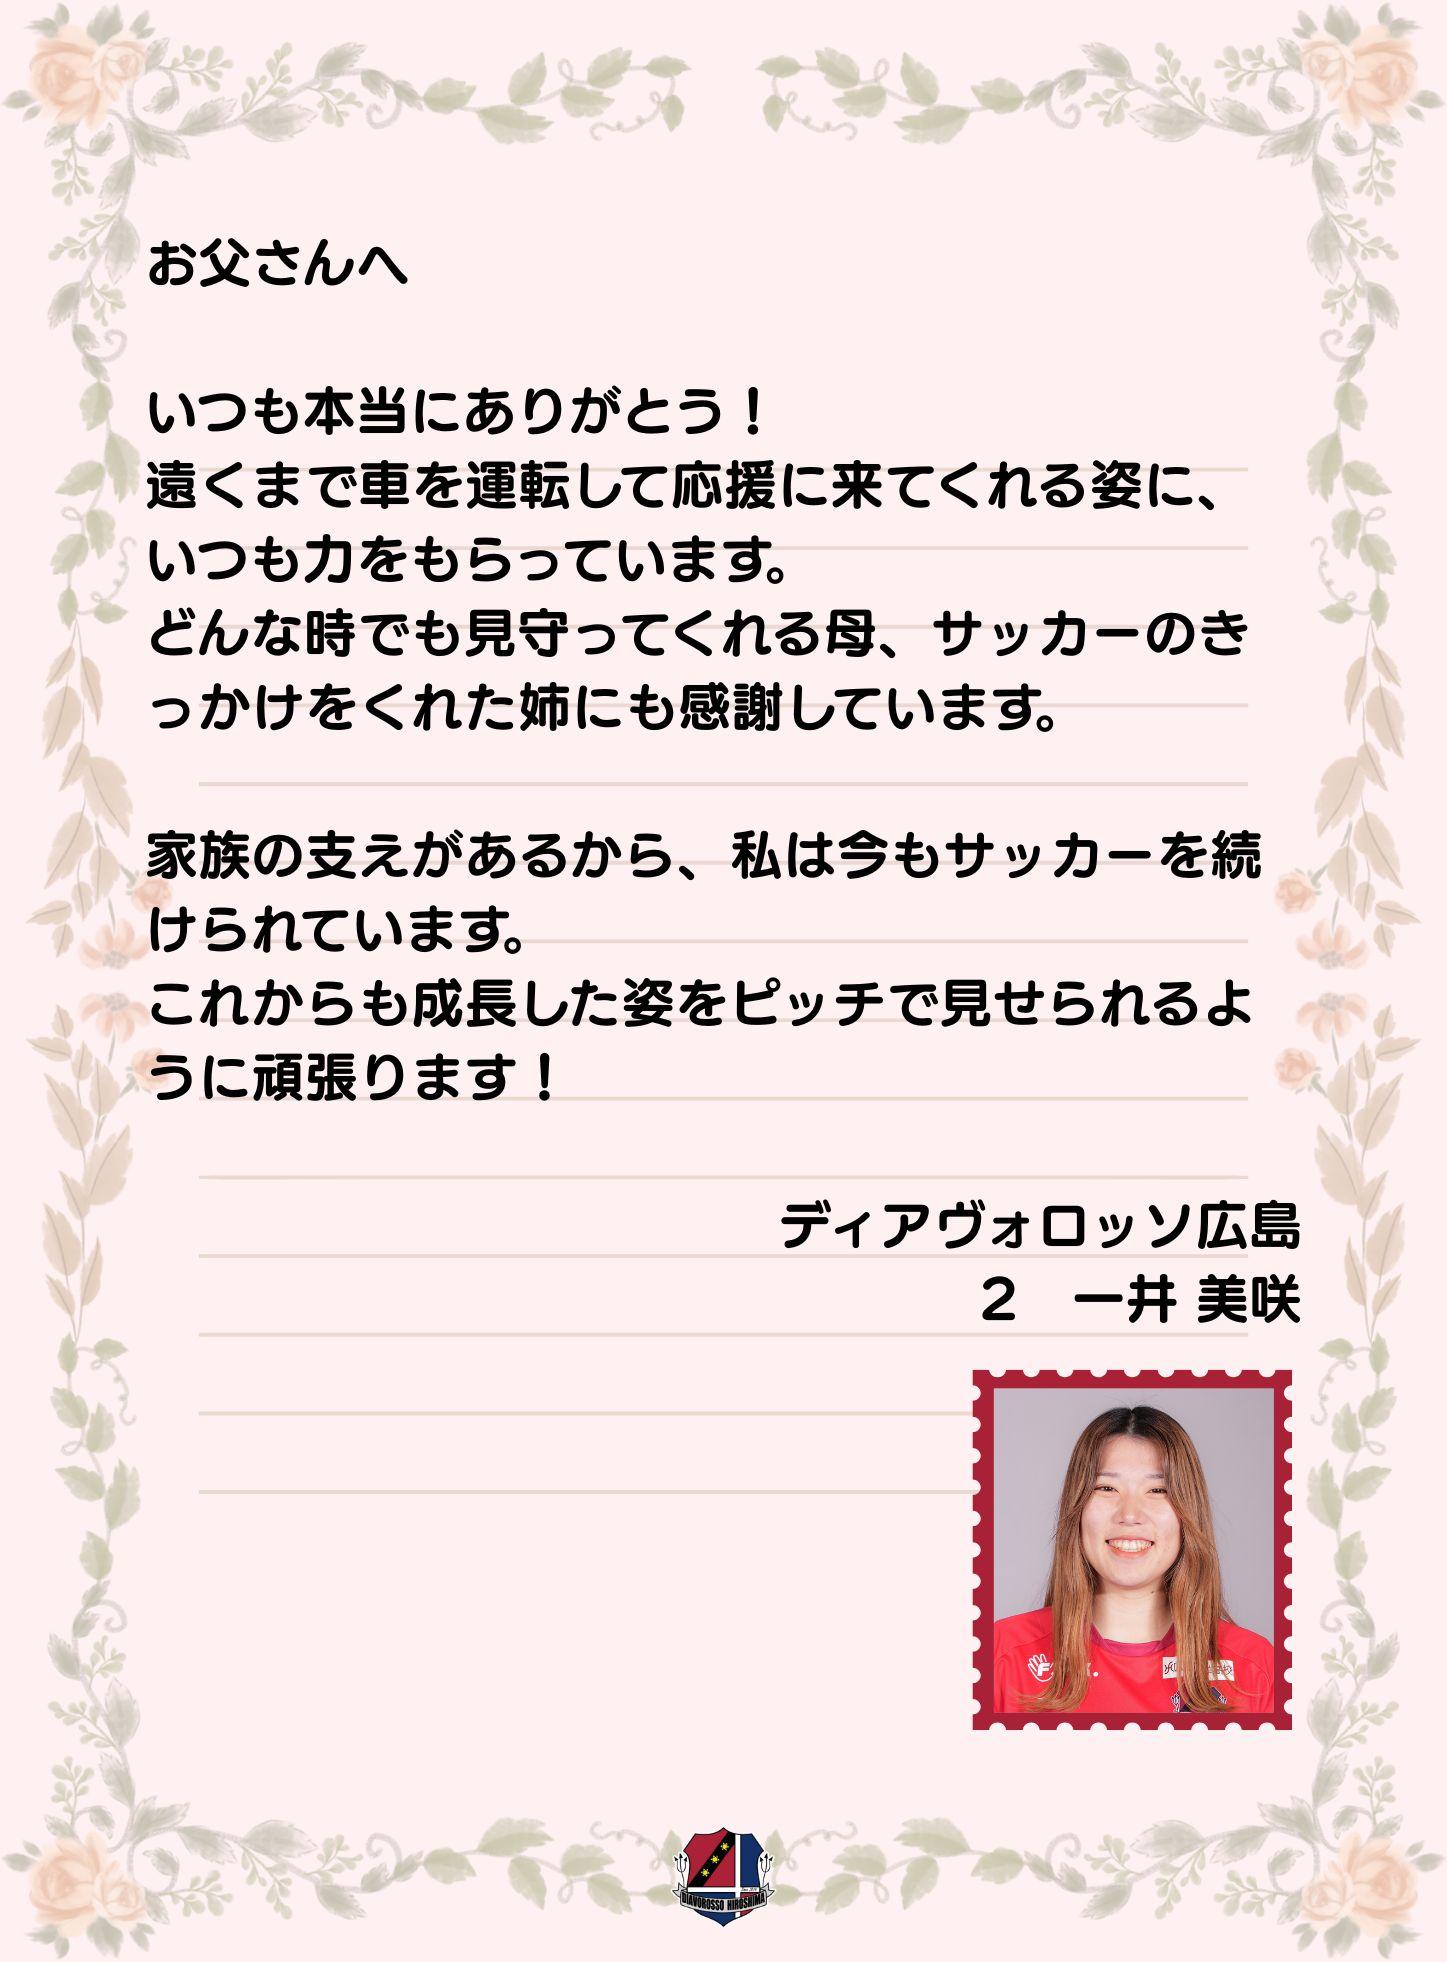 お父さんへ
いつも本当にありがとう！
遠くまで車を運転して応援に来てくれる姿に、
いつも力をもらっています。
どんな時でも見守ってくれる母、サッカーのき
っかけをくれた姉にも感謝しています。
家族の支えがあるから、私は今もサッカーを続
けられています。
これからも成長した姿をピッチで見せられるよ
うに頑張ります！
ディアヴォロッソ広島
2　一井 美咲
DIAVOROSSO HIROSHIMA